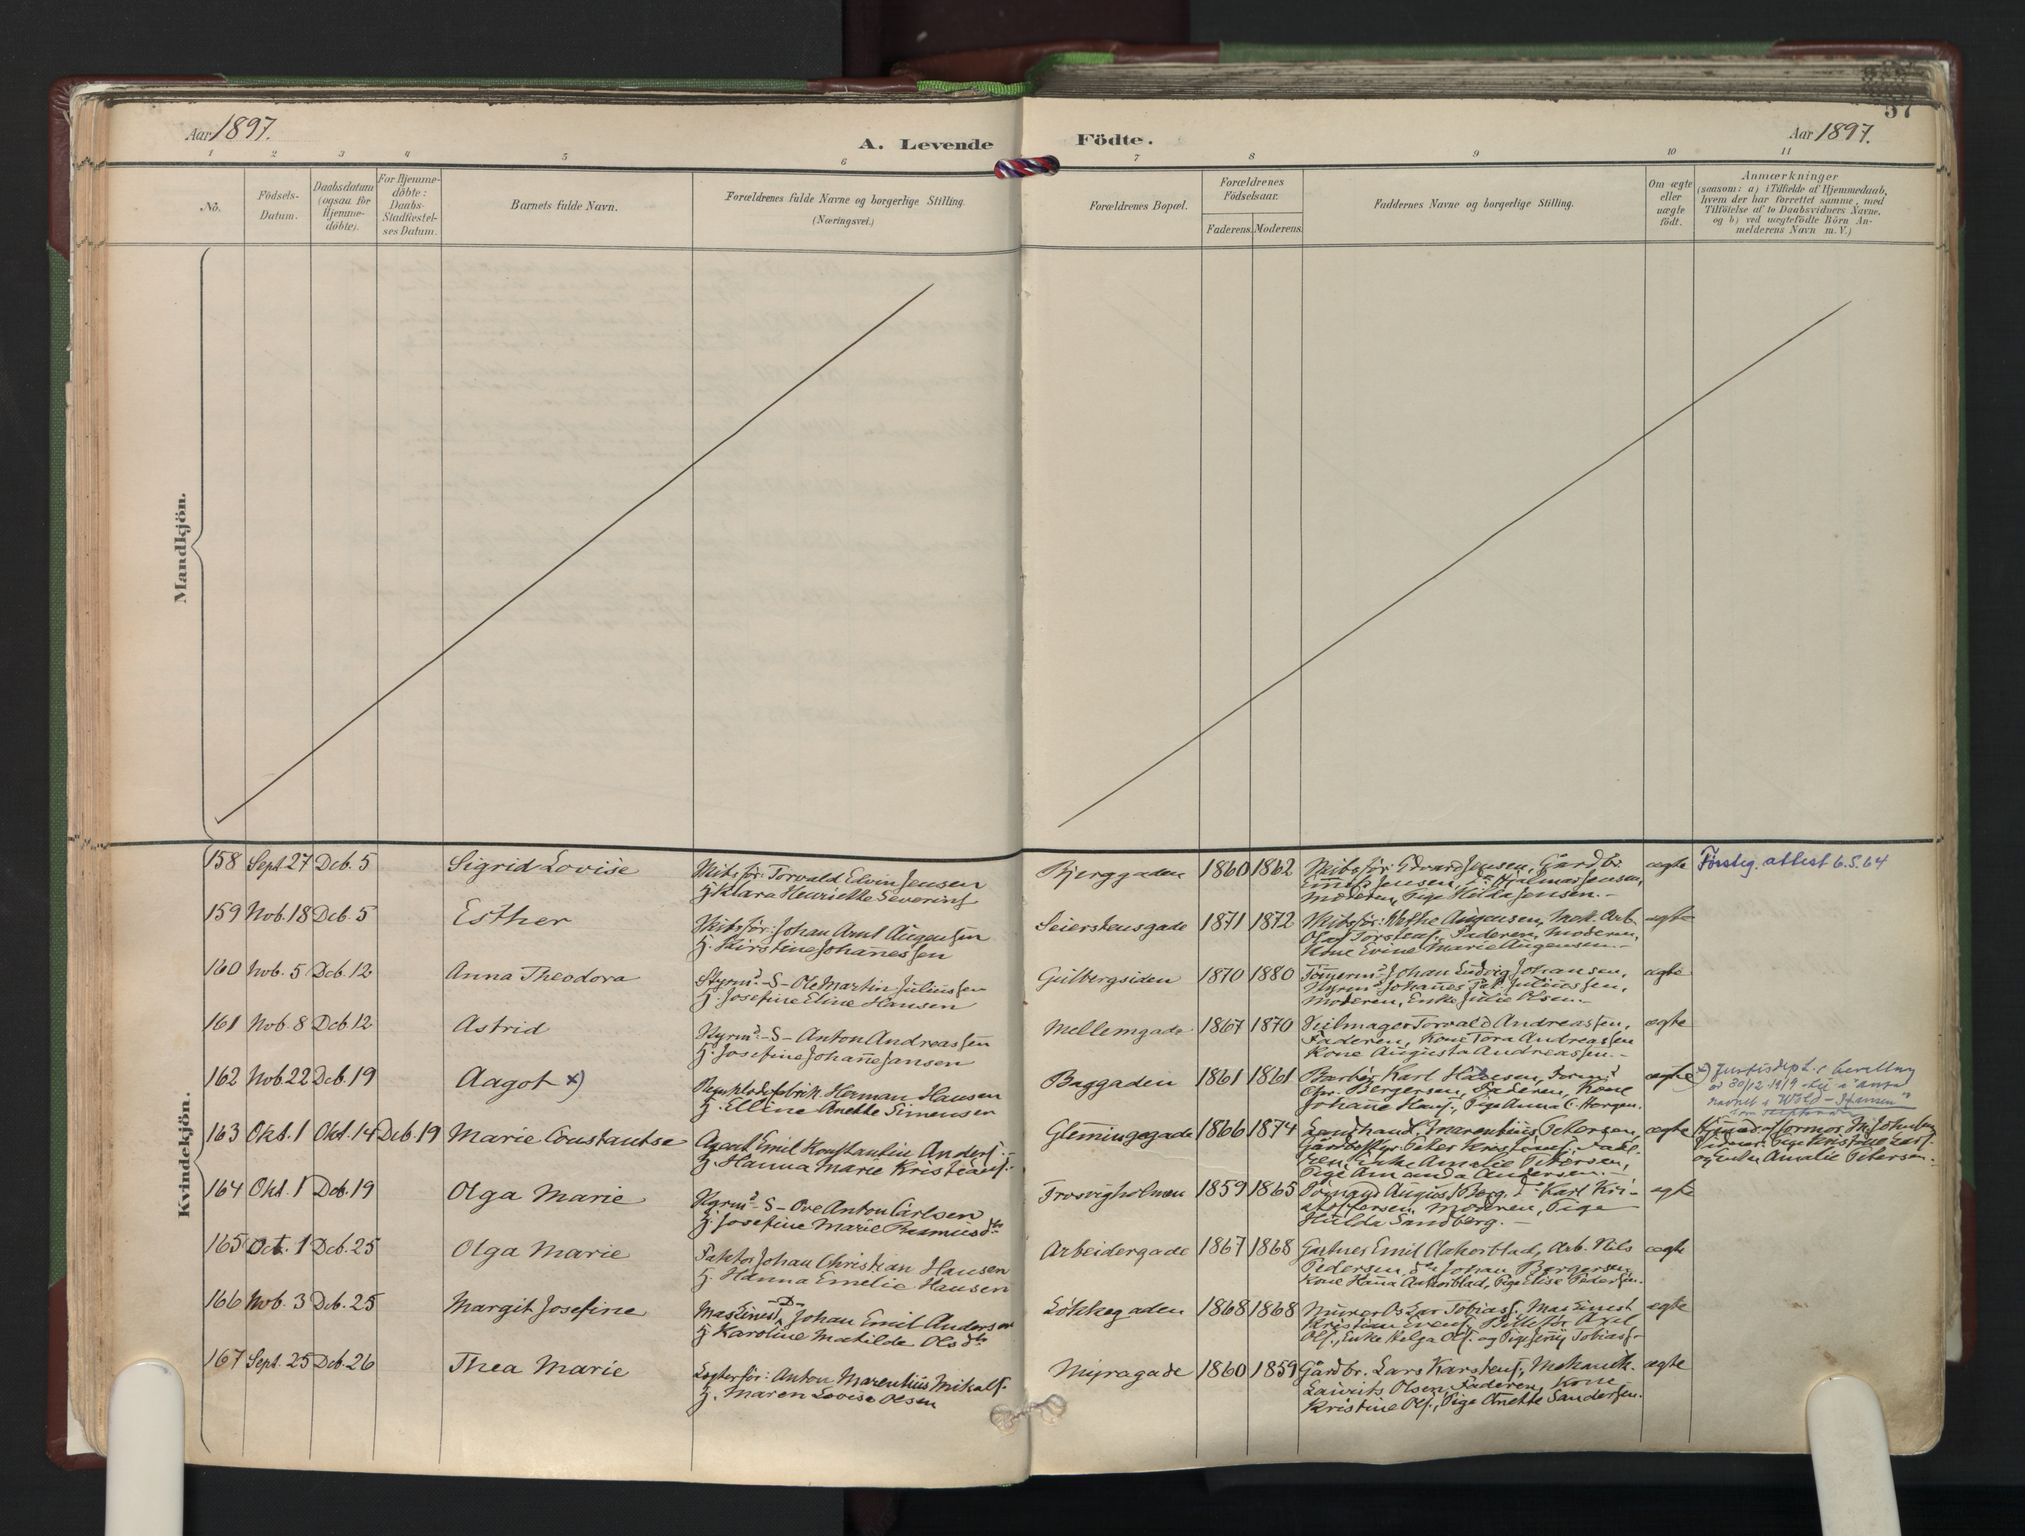 57
Aar 1897.
A. Levende Födte.
Aar 1897.
1 2 3 4 5 6 7 8 9 10 11
No.
Födsels-
Datum.
Daabsdatum
(ogsaa for
Hjemme-
döbte).
For Hjemme-
döbte:
Daabs-
Stadfæstel-
ses Datum.
Barnets fulde Navn.
Forældrenes fulde Navne og borgerlige Stilling.
(Næringsvei.)
Forældrenes Bopæl.
Forældrenes
Födselsaar.
Faderens. Moderens.
Faddernes Navne og borgerlige Stilling.
Om ægte
eller
uægte
födt.
Anmærkninger
(saasom: a) i Tilfælde af Hjemmedaab,
hvem der har forrettet samme, med
Tilföielse af to Daabsvidners Navne,
og b) ved uægtefödte Börn An-
melderens Navn m. V.)
Mandkjön.
Kvindekjön.
158 Sept 27 Deb. 5 Sigrid Lovise
Skibsför: Torvald Edvin Jensen
H. Klara Henriette Severins
Bjerggaden 1860 1862
Skibsför: Edvard Jensen, Gårdbr.
Emil Jensen, Hjalmar Jensen,
Moderen, Pige Hilda Jensen.
ægte
Fødselg. attest 6.5.64
159 Nob. 18 Deb. 5 Esther
Skibsför: Johan Arnt Augensen
H. Kirstine Johanessen
Seierstensgade 1871 1872
Skibsför: Augensen, Arb.
Olaf Torstens., Faderen, Moderen,
Kone Evine Marie Augensen.
ægte
160 Nob. 5 Deb. 12 Anna Theodora
Styrm. - S - Ole Martin Juliussen
H. Josefine Eline Hansen
Gulbergsiden 1870 1880
Tömerm. Johan Ludvig Johansen,
Styrm. Johanes Juliussen,
Moderen, Enke Julie Olsen.
ægte
161 Nob. 8 Deb. 12 Astrid
Styrm. - S - Anton Andreassen
H. Josefine Johane Jansen
Mellemgade 1867 1870
Seilmager Torvald Andreassen,
Faderen, Kone Tora Andreassen
Kone Augusta Andreassen.
ægte
162 Nob. 22 Deb. 19 Aagot x)
Herman Hansen
H. Elline Anette Simensen
Baggaden 1861 1861
Barber Karl Hansen,
Chr. Bergersen, Faderen, Kone
Johane Hans., Pige Anna C. Horgen.
ægte
x) Justisdept.s bevilling
av 30/12 1919 til å anta
navnet "Wold-Hansen"
163 Okt. 1 Okt. 14 Deb. 19 Marie Constantse
Agent Emil Konstantin Anders.
H. Hanna Marie Kristians.
Glemingegade 1866 1874
Landhand. Petersen,
Gårdbestyr Peter Kristians.,
Enke Amalie Petersen,
Pige Amanda Andersen.
ægte
Hjemmed. af Jormor
Pige Kristine Lars.
og Enke Amalie Petersen.
164 Okt. 1 Deb. 19 Olga Marie
Styrm. - S - Ove Anton Carlsen
H. Josefine Marie Rasmusdtr
Trosvigholmen 1859 1865
August Berg, Karl Kri-
stoffersen, Moderen, Pige
Hulda Sandberg.
ægte
165 Oct. 1 Deb. 25 Olga Marie
Faktor Johan Christian Hansen
H. Hanna Emelie Hansen
Arbeidergade 1867 1868
Gartner Emil Askorblad, Arb. Nils
Pedersen, Johan Borgersen,
Kone Hana Askorblad, Pige Elise Pedersen.
ægte
166 Nob. 3 Deb. 25 Margit Josefine
Maskinest - D - Johan Emil Andersen
H. Karoline Matilde Olsdtr
Lökkegaden 1868 1868
Lar Tobias., Maskinest
Kristian Evens., Axel
Ols., Enke Helga Ols. og Pige Jeny Tobias.
ægte
167 Sept. 25 Deb. 26 Thea Marie
Logterför: Anton Marentius Mikals.
H. Maren Lovise Olsen
Myragade 1860 1859
Gårdbr. Lars Karstens., Mekanik.
Laurits Olsen, Faderen, Kone
Kristine Ols., Pige Anette Sandersen.
ægte